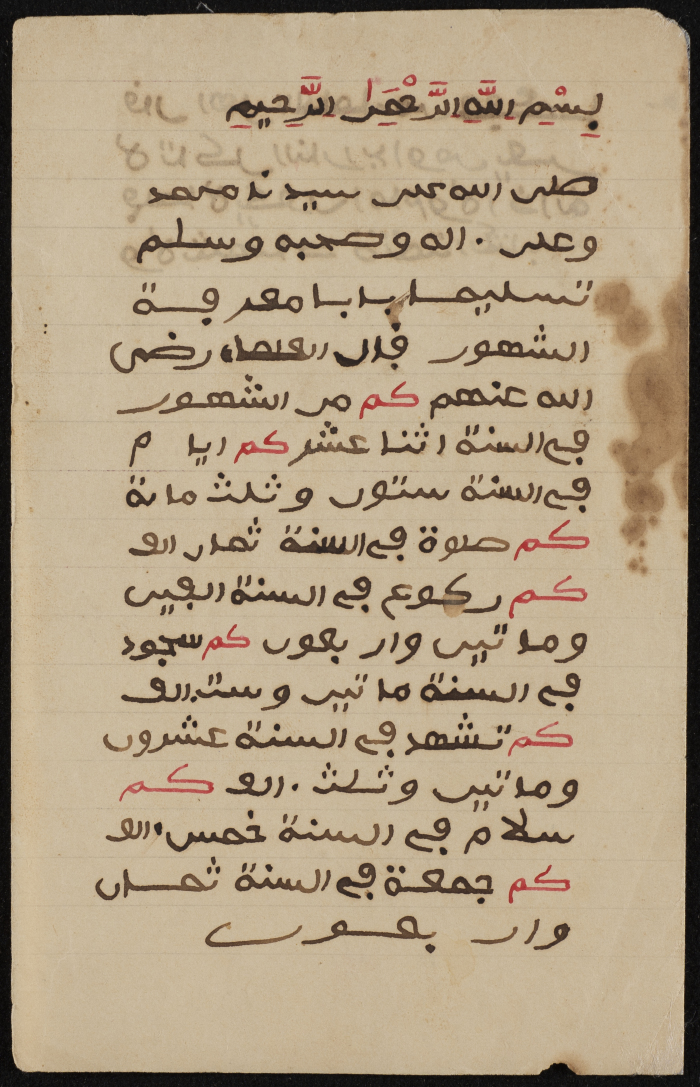 بِسْمِ اللَّهِ الرَّحْمَٰنِ الرَّحِيمِ
صلى الله على سيدنا محمد
وعلى اله وصحبه وسلم
تسليما بابا معرفة
الشهور قال العلماء رضى
الله عنهم كم من الشهور
في السنة اثنا عشر كم ايام
في السنة ستون وثلث مائة
كم صلوة في السنة ثمان الف
كم ركوع في السنة الفين
ومائتين واربعون كم سجود
في السنة مائتين وست الف
كم تشهد في السنة عشرون
ومائتين وثلث الف كم
سلام في السنة خمس الف
كم جمعة في السنة ثمان
واربعون